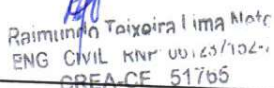 Raimundo Teixeira Lima Neto
ENG CIVIL RNP
CREA-CE 51765